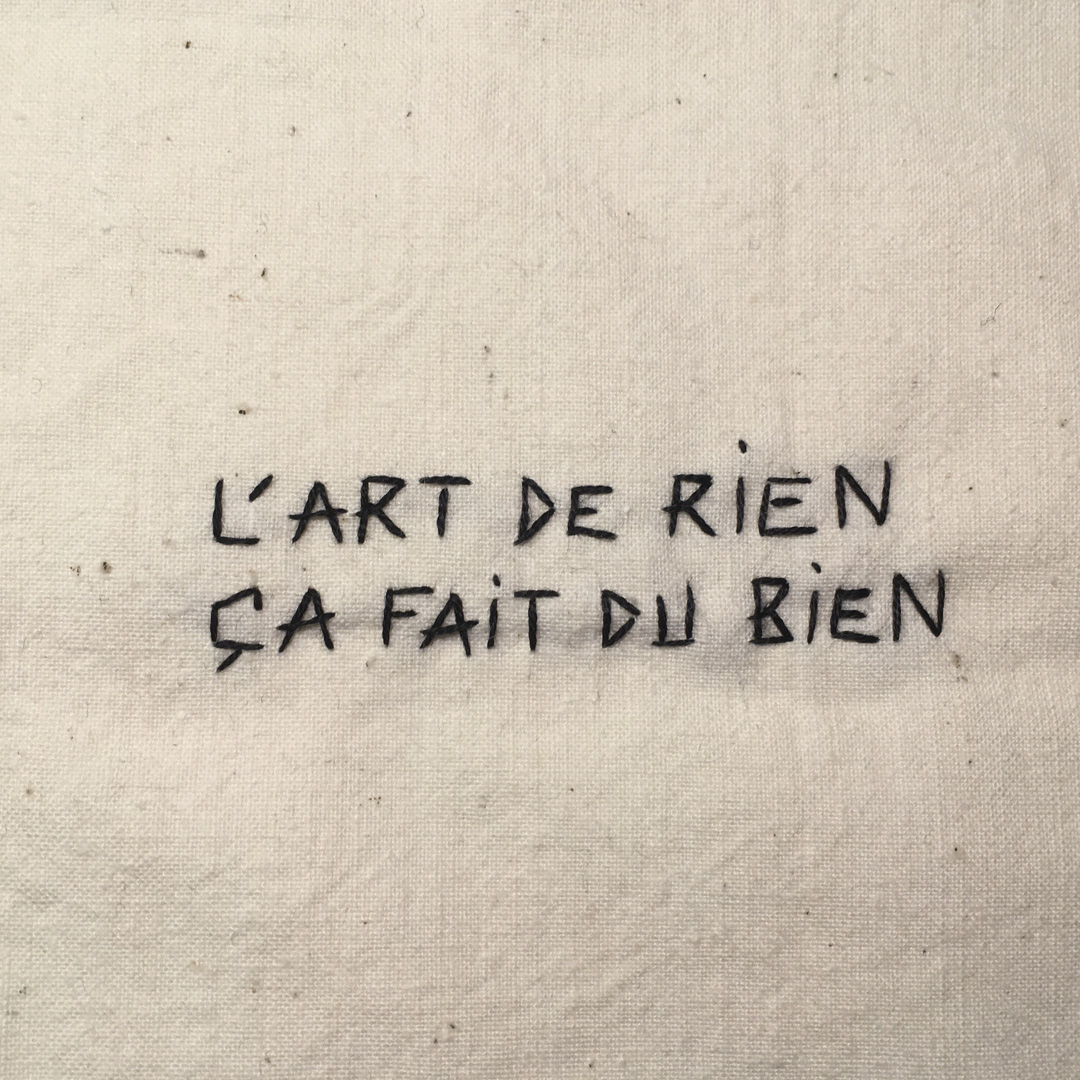 L'ART DE RiEN
ÇA FAiT DU BiEN